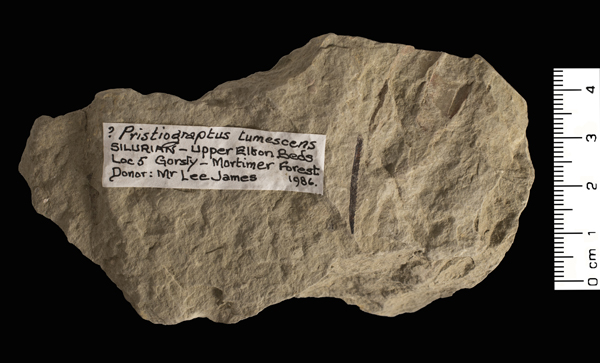 ? Pristiograptus tumescens
SILURIAN - Upper Elton Beds
Loc 5 Gorsty - Mortimer Forest
Donor: Mr Lee James 1986.
4
3
2
1
0 cm